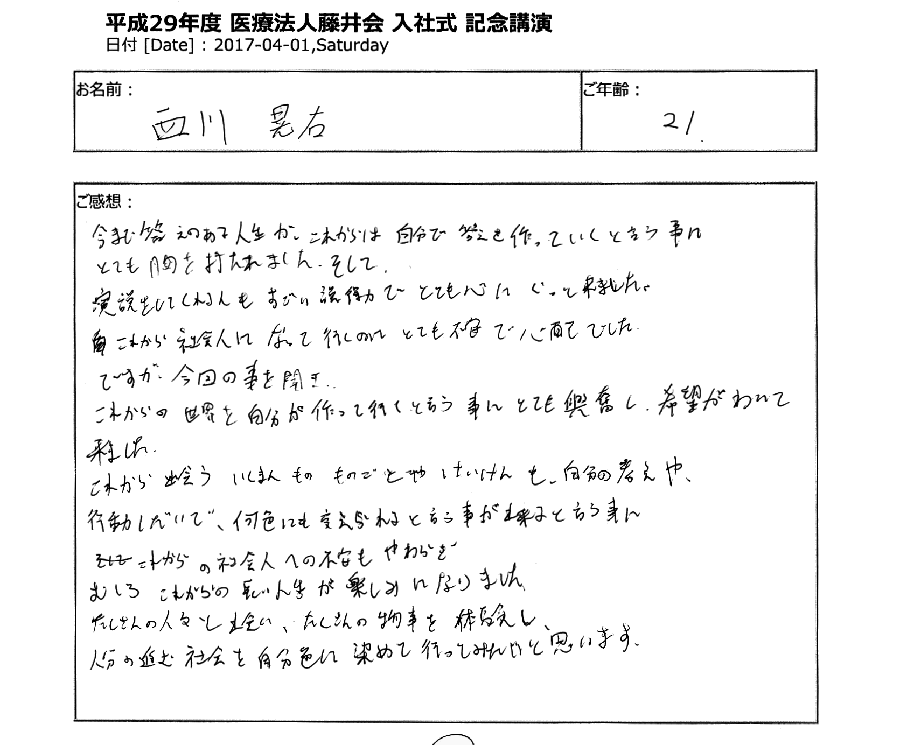 平成29年度 医療法人藤井会 入社式 記念講演
日付 [Date] : 2017-04-01,Saturday
お名前：
西川 晃右
ご年齢：
21.
ご感想：
今まで答えのある人生が、これからは自分で答えを作っていくと言う事に
とても胸を打たれました。そして、
演説をしてくれる人もすごい説得力でとても心にぐっと来ました。
これから社会人になって行くのにとても不安で心配でした。
ですが、今回の事を聞き、
これからの世界を自分が作って行くと言う事にとても興奮し、希望がわいて
来ました。
これから出会う いくまん もの ものごとや けいけんも、自分の考えや、
行動しだいで、何色にも変えられると言う事が出来ると言う事に
これからの社会人への不安もやわらぎ
むしろ これからの長い人生が楽しみになりました。
たくさんの人々と出会い、たくさんの物事を体験し、
自分の進む社会を自分色に染めて行ってみたいと思います。